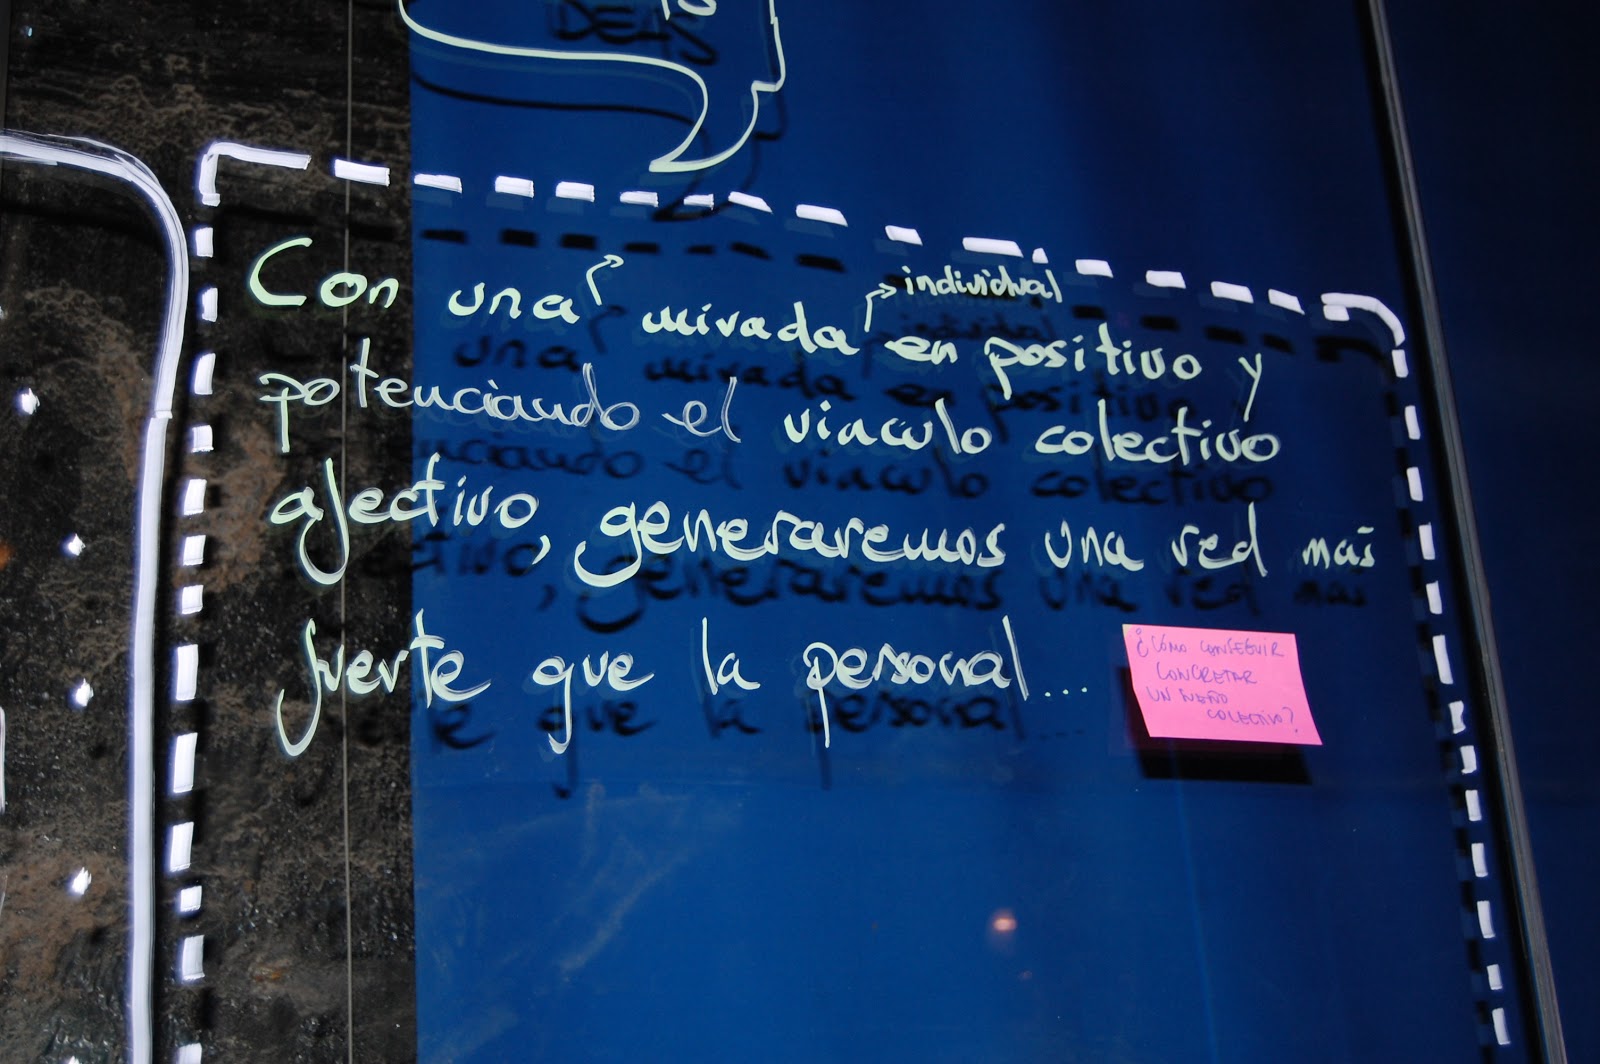 DEAS
individual
Con una mirada en positivo y
potenciando el vinculo colectivo
afectivo, generaremos una red más
fuerte que la personal...
¿CÓMO CONSEGUIR
CONCRETAR
UN SUEÑO
COLECTIVO?